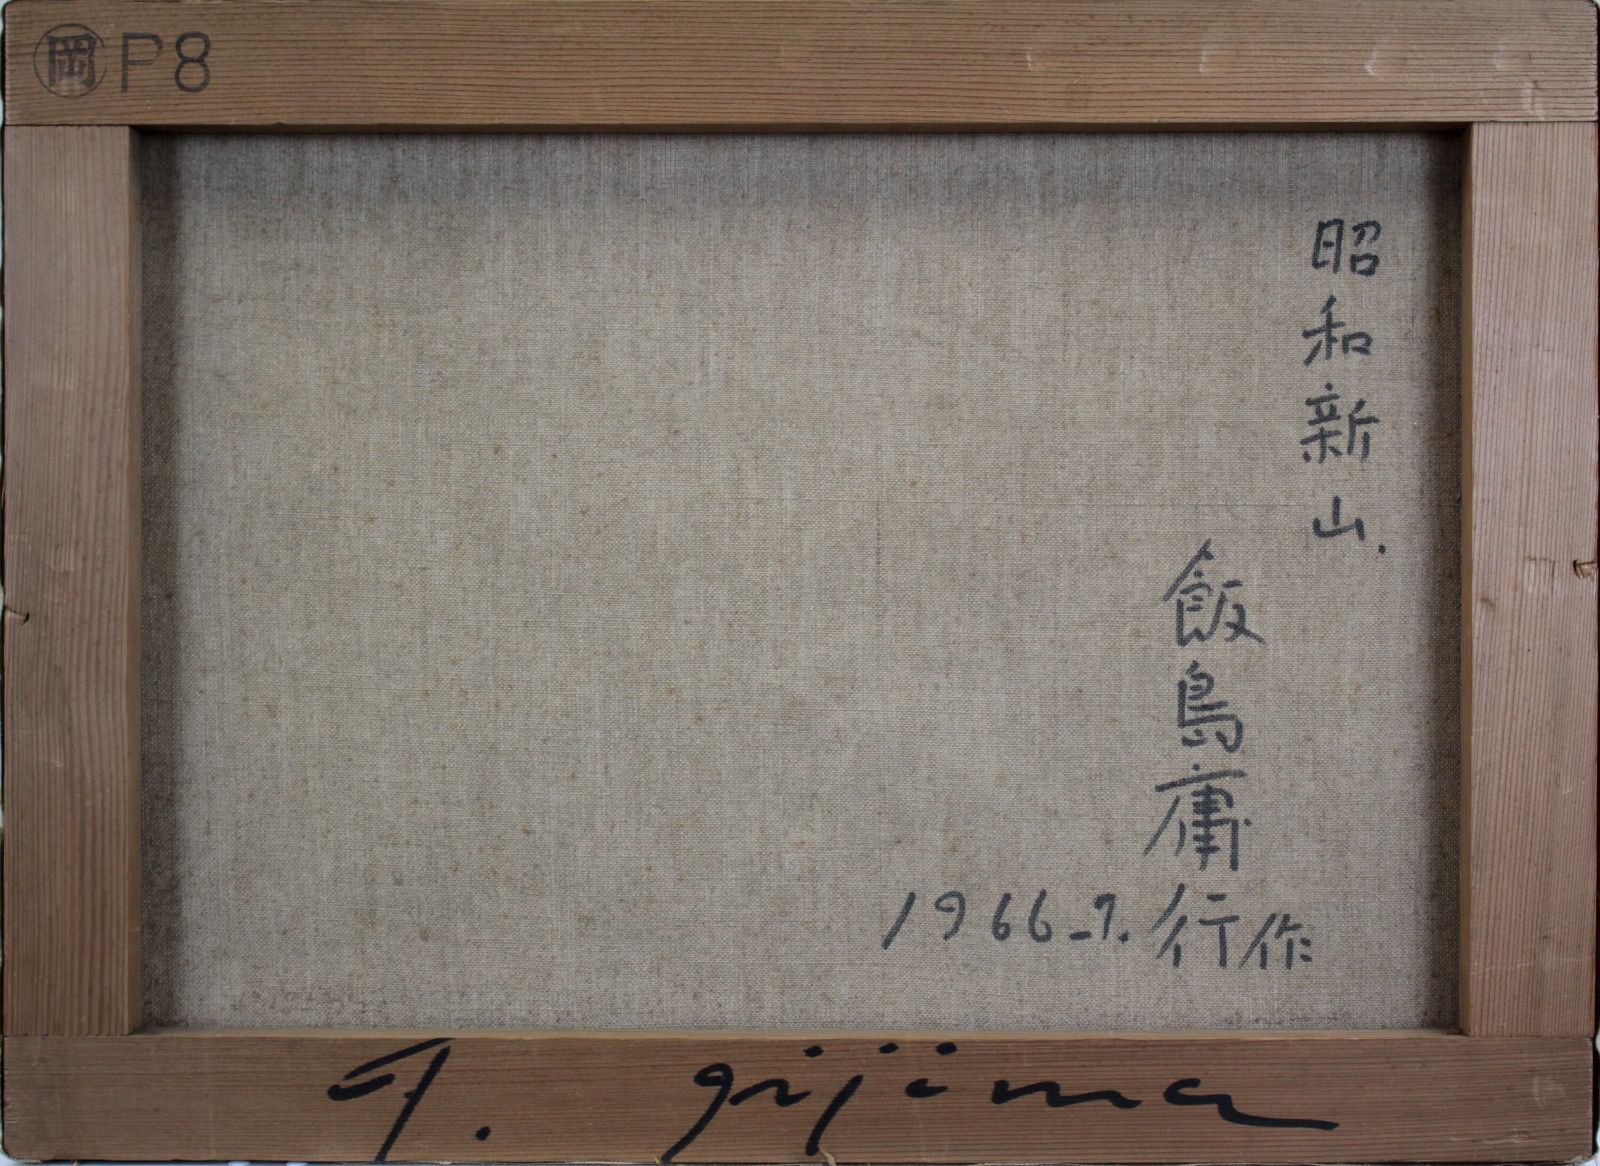 岡 P8
昭和新山.
飯島庸行作
1966-7.
Y. Iijima